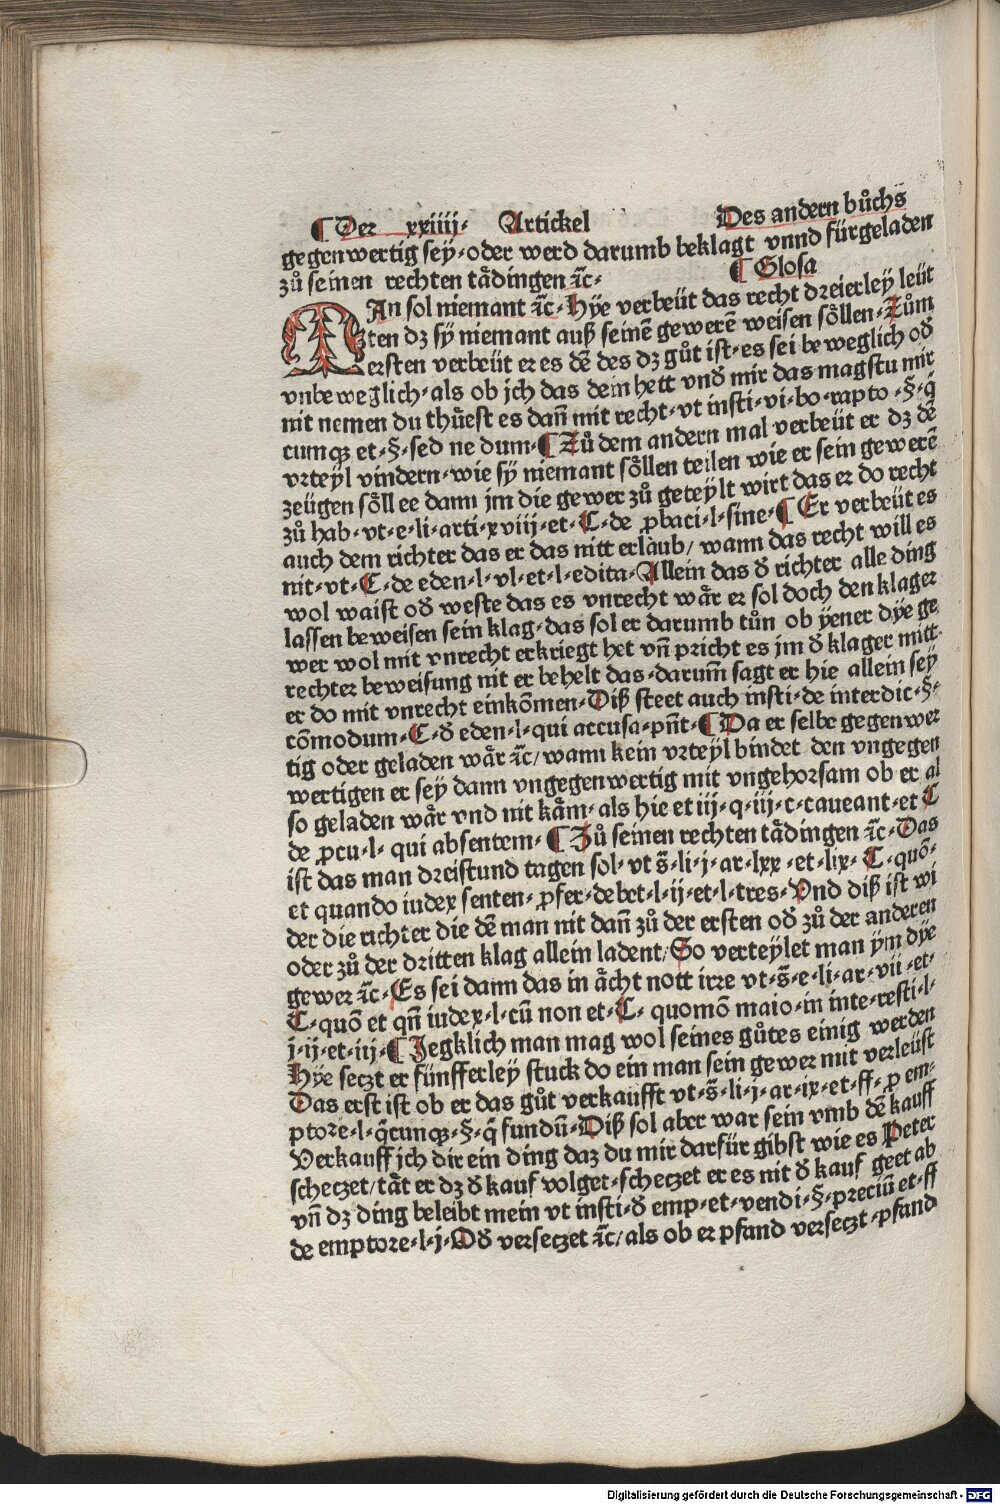 ¶ Der xxiiij· Artickel Des andern bůchs
gegenwertig sey· oder werd darumb beklagt vnnd fürgeladen
zů seinen rechten tådingen ꝛc̃· ¶ Glosa
MAn sol niemant ꝛc̃· Hÿe verbeüt das recht dreierley leüt
ten dz sÿ niemant auß seinẽ gewerẽ weisen söllen· Zům
ersten verbeüt er es dẽ des dz gůt ist· es sei beweglich oð
vnbeweglich· als ob jch das dein hett vnð mir das magstu mir
nit nemen du thůest es dañ mit recht· vt insti· vi· bo· rapto· §· q̃
cumqꝫ et· §· sed ne dum· ¶ Zů dem andern mal verbeüt er dz dẽ
vrteyl vindern· wie sÿ niemant söllen teilen wie er sein gewerẽ
zeügen söll ee dann jm die gewer zů geteÿlt wirt das er do recht
zů hab· vt· e· li· arti· xviij· et· C· de ꝓbaci· l· sine· ¶ Er verbeüt es
auch dem richter das er das nitt erlaub/ wann das recht will es
nit· vt· C· de eden· l· vl· et· l· edita· Allein das ð richter alle ding
wol waist oð weste das es vnrecht wår er sol doch den klager
lassen beweisen sein klag· das sol er darumb tůn ob ÿener dÿe ge
wer wol mit vnrecht erkriegt het vñ pricht es jm ð klager mitt
rechter beweisung nit er behelt das· darum̃ sagt er hie allein seÿ
er do mit vnrecht einkõmen· Diß steet auch insti· de interdic· §·
cõmodum· C· ð eden· l· qui accusa· pñt· ¶ Da er selbe gegenwer
tig oder geladen wår ꝛc̃/ wann kein vrteÿl bindet den vngegen
wertigen er seÿ dann vngegenwertig mit vngehorsam ob er al
so geladen wår vnd nit kåm· als hie et iij· q· iij· c· caueant· et C
de ꝓcu· l· qui absentem· ¶ Zů seinen rechten tådingen ꝛc̃· Das
ist das man dreistund tagen sol· vt s̃· li· j· ar· lxx· et· lix· C· quõ·
et quando iudex senten· ꝓfer· debet· l· ij· et· l· tres· Vnd diß ist wi
der die richter die dẽ man nit dañ zů der ersten oð zů der anderen
oder zů der dritten klag allein ladent/ So verteÿlet man ÿm dÿe
gewer ꝛc̃· Es sei dann das in åcht nott irre vt· s̃· e· li· ar· vii· et·
C· quõ et qñ iudex· l· cũ non et· C· quomõ maio· in inte· resti· l·
j· ij· et· iij· ¶ Jegklich man mag wol seines gůtes einig werden
Hÿe seczt er fünfferleÿ stuck do ein man sein gewer mit verleüst
Das erst ist ob er das gůt verkaufft vt· s̃· li· j· ar· ix· et· ff· ꝓ em·
ptore· l· q̃cunqꝫ· §· q̃ fundũ· Diß sol aber war sein vmb dẽ kauff
Verkauff jch dir ein ding daz du mir darfür gibst wie es Peter
scheczet/ tåt er dz ð kauf volget· scheczet er es nit ð kauf geet ab
vñ dz ding beleibt mein vt insti· ð emp· et· vendi· §· preciũ et· ff
de emptore· l· j· Oð verseczet ꝛc̃/ als ob er pfand verseczt· pfand
Digitalisierung gefördert durch die Deutsche Forschungsgemeinschaft - DFG